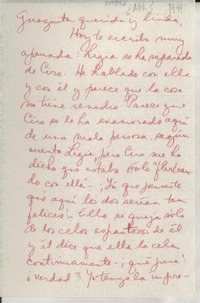 Guagüita querida y linda,
Hoy te escribo muy
apenada: Ligia se ha separado
de Ciro. He hablado con ella
y con él y parece que la cosa
no tiene remedio. Parece que
Ciro se le ha enamorado aquí
de una mala persona, según
cuenta Ligia, pero Ciro me ha
dicho que estaba sólo "flirtean
do con ella". ¡Lo que pensaste
que aquí los dos serían tan
felices! Ella se queja sólo
de los celos espantosos de él
y él dice que ella lo cela
continuamente. ¡qué pena!
¿verdad? Yo tengo la impre-